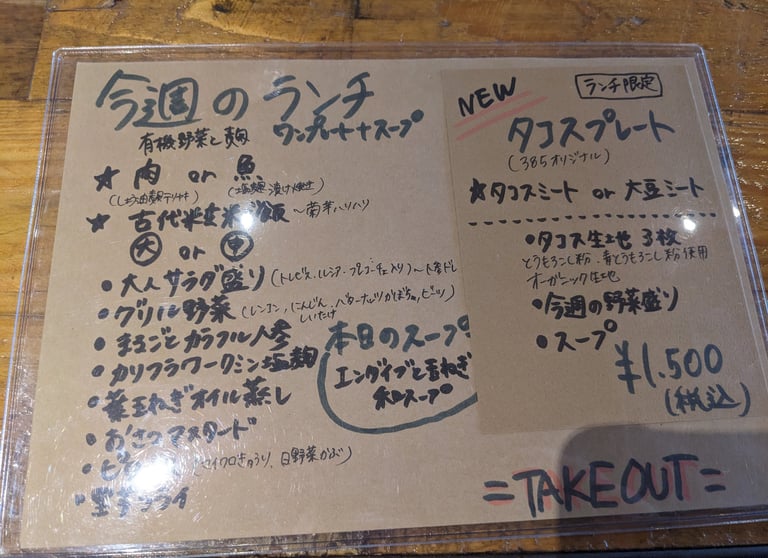 今週のランチ
ワンプレート+スープ
有機野菜と麹
★肉 or 魚
★古代米玄米 ～菊芋ハリハリ
大 or 中
・大人サラダ盛り
・グリル野菜(レンコン,にんじん,バターナッツかぼちゃ,ビーツ
しいたけ
・まるごとカラフル人参
・カリフラワークミン塩麹
・葉玉ねぎオイル蒸し
・おさつマスタード
日野菜かぶ)
フライ
本日のスープ
エンダイブと玉ねぎ
和スープ
NEW
ランチ限定
タコスプレート
(385オリジナル)
★タコスミート or 大豆ミート
・タコス生地 3枚
とうもろこし粉、青とうもろこし粉使用
オーガニック生地
・今週の野菜盛り
・スープ
¥1,500
(税込)
=TAKEOUT=